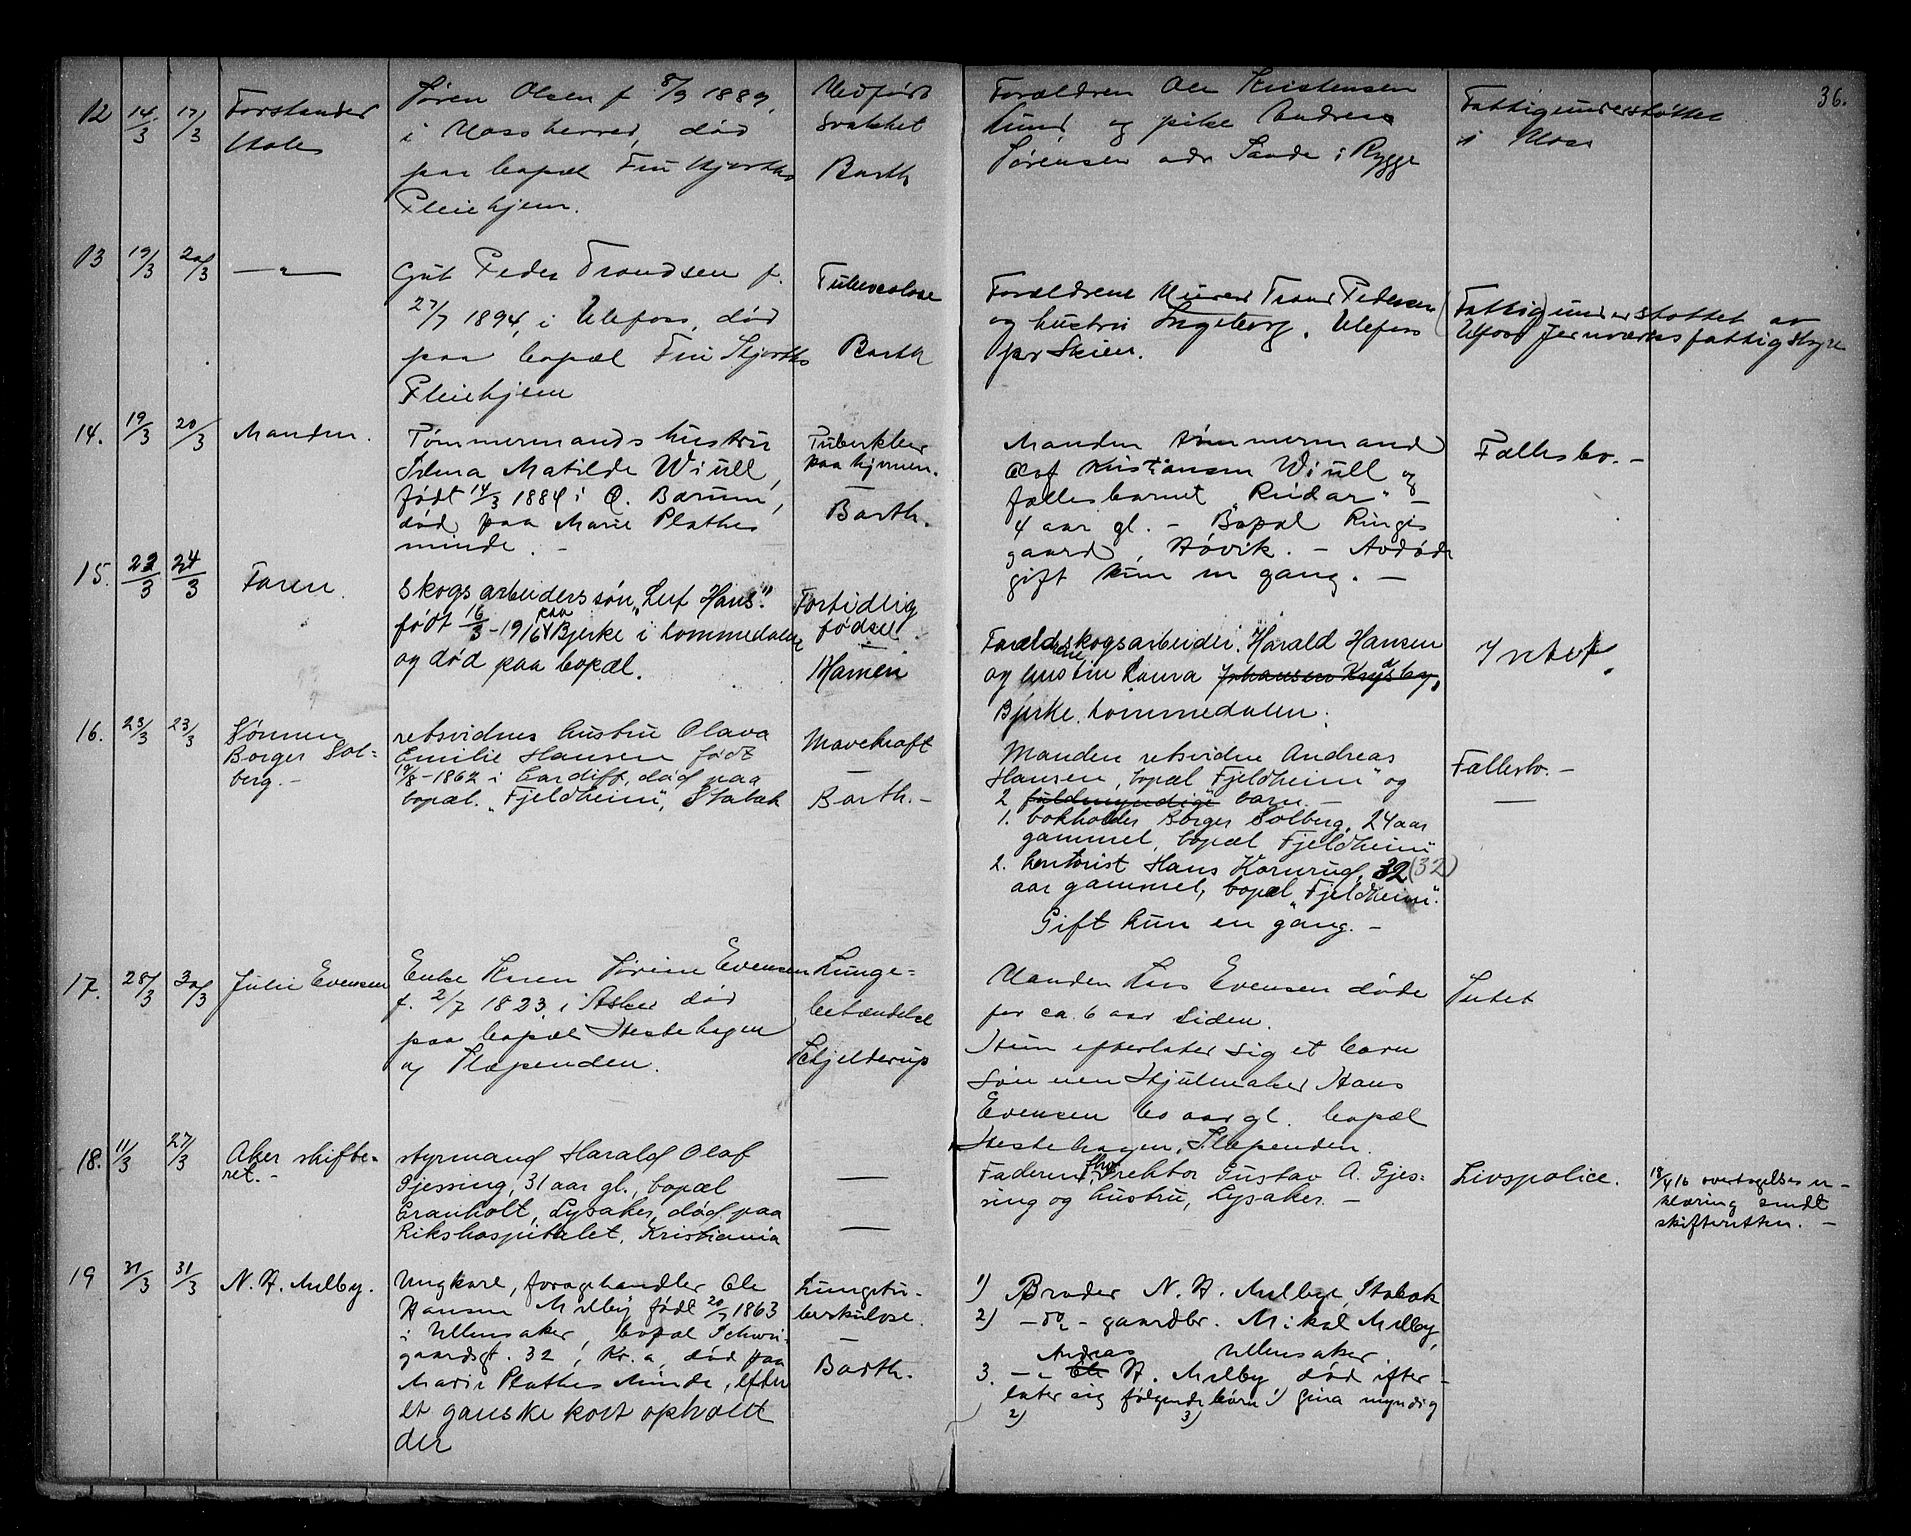 36.
12 14/3 17/3 Forstander
Søren Olsen f 8/9 1889,
i Moss herred, død
paa bopæl Fru Hjorths
Pleiehjem.
Medfødt
svakhet
Barth
Forældren Ole Kristensen
Lund og pike Andrea
Sørensen adr Saade i Rygge
Fattigunderstøttet
i Moss
13 19/3 20/3 — " —
Gut Peder Trondsen f.
27/7 1894, i Ulefoss, død
paa bopæl Fru Hjorths
Pleiehjem
Tuberculose
Barth
Forældrene Murer Trond Pedersen
og hustru Ingeborg, Ulefoss
pr Skien.
Fattigunderstøttet av
Ulefoss Jernværks fattigstyre
14. 19/3 20/3 Manden.
Tømmermands hustru
Selma Matilde Wiull,
født 14/3 1884 i Ø. Bærum,
død paa Marie Plathes
minde. –
Tuberkler
paa hjernen.
–
Barth.
Manden tømmermand
Olaf Kristiansen Wiull og
fællesbarnet "Reidar" –
4 aar gl. – Bopæl Ringis
gaard, Høvik. – Avdøde
gift kun en gang. –
Fællesbo. –
15. 23/3 24/3 Faren.
Skogsarbeiders søn, "Leif Hans".
født 16/3 - 1916 paa Bjerke i Lommedalen
og død paa bopæl.
Fortidlig
fødsel.
–
Hamen
Forældrene skogsarbeider Harald Hansen
og hustru Laura Johansen Krydsby,
Bjerke. Lommedalen.
Intet.
16. 23/3 23/3 Sønnen
Borger Sol-
berg. –
retsvidnes hustru Olava
Emilie Hansen født
19/8 - 1862 i Cardiff, død paa
bopæl. "Fjeldheim", Stabæk
Mavekræft
–
Barth. –
Manden retsvidne Andreas
Hansen, bopæl "Fjeldheim" og
2 fuldmyndige barn. –
1. bokholder Borger Solberg, 24 aar
gammel, bopæl Fjeldheim
2. kontorist Hans Hornrud, 32 (32)
aar gammel, bopæl "Fjeldheim".
Gift kun en gang. –
Fællesbo. –
—
17. 28/3 30/3 Julie Evensen
Enke Karen Sørine Evensen
f. 2/7 1823, i Asker død
paa bopæl Hestehagen
og Slæpenden.
Lunge=
betændelse
Schjelderup
Manden Lars Evensen døde
for ca. 6 aar siden.
Hun efterlater sig et barn
Sønnen Hjulmaker Hans
Evensen 60 aar gl. bopæl
Hestehagen, Slæpenden.
Intet
18. 11/3 27/3 Aker skifte-
ret. –
styrmand Harald Olaf
Gjessing, 31 aar gl., bopæl
Granholt, Lysaker, død paa
Rikshospitalet, Kristiania
—
—
Faderen, direktør Gustav A. Gjes-
sing og hustru, Lysaker. –
Livspolice.
18/4 16 overtagelseser-
klæring sendt
skifteretten. –
19 31/3 31/3 N. H. Melby.
Ungkarl, foragehandler Ole
Hansen Melby født 20/7 1863
i Ullensaker, bopæl Schwei-
gaardsgt. 32, Kr.a, død paa
Marie Plathes Minde, efter
et ganske kort ophold
der
Lungetu-
berkulose.
–
Barth.
1) Broder N. H. Melbye, Stabæk
2) – do – gaardbr. Mikal Melby,
Ullensaker
3. – " – Ole Andreas H. Melby død efter-
later sig følgende børn 1) Gina myndig
2) 3)